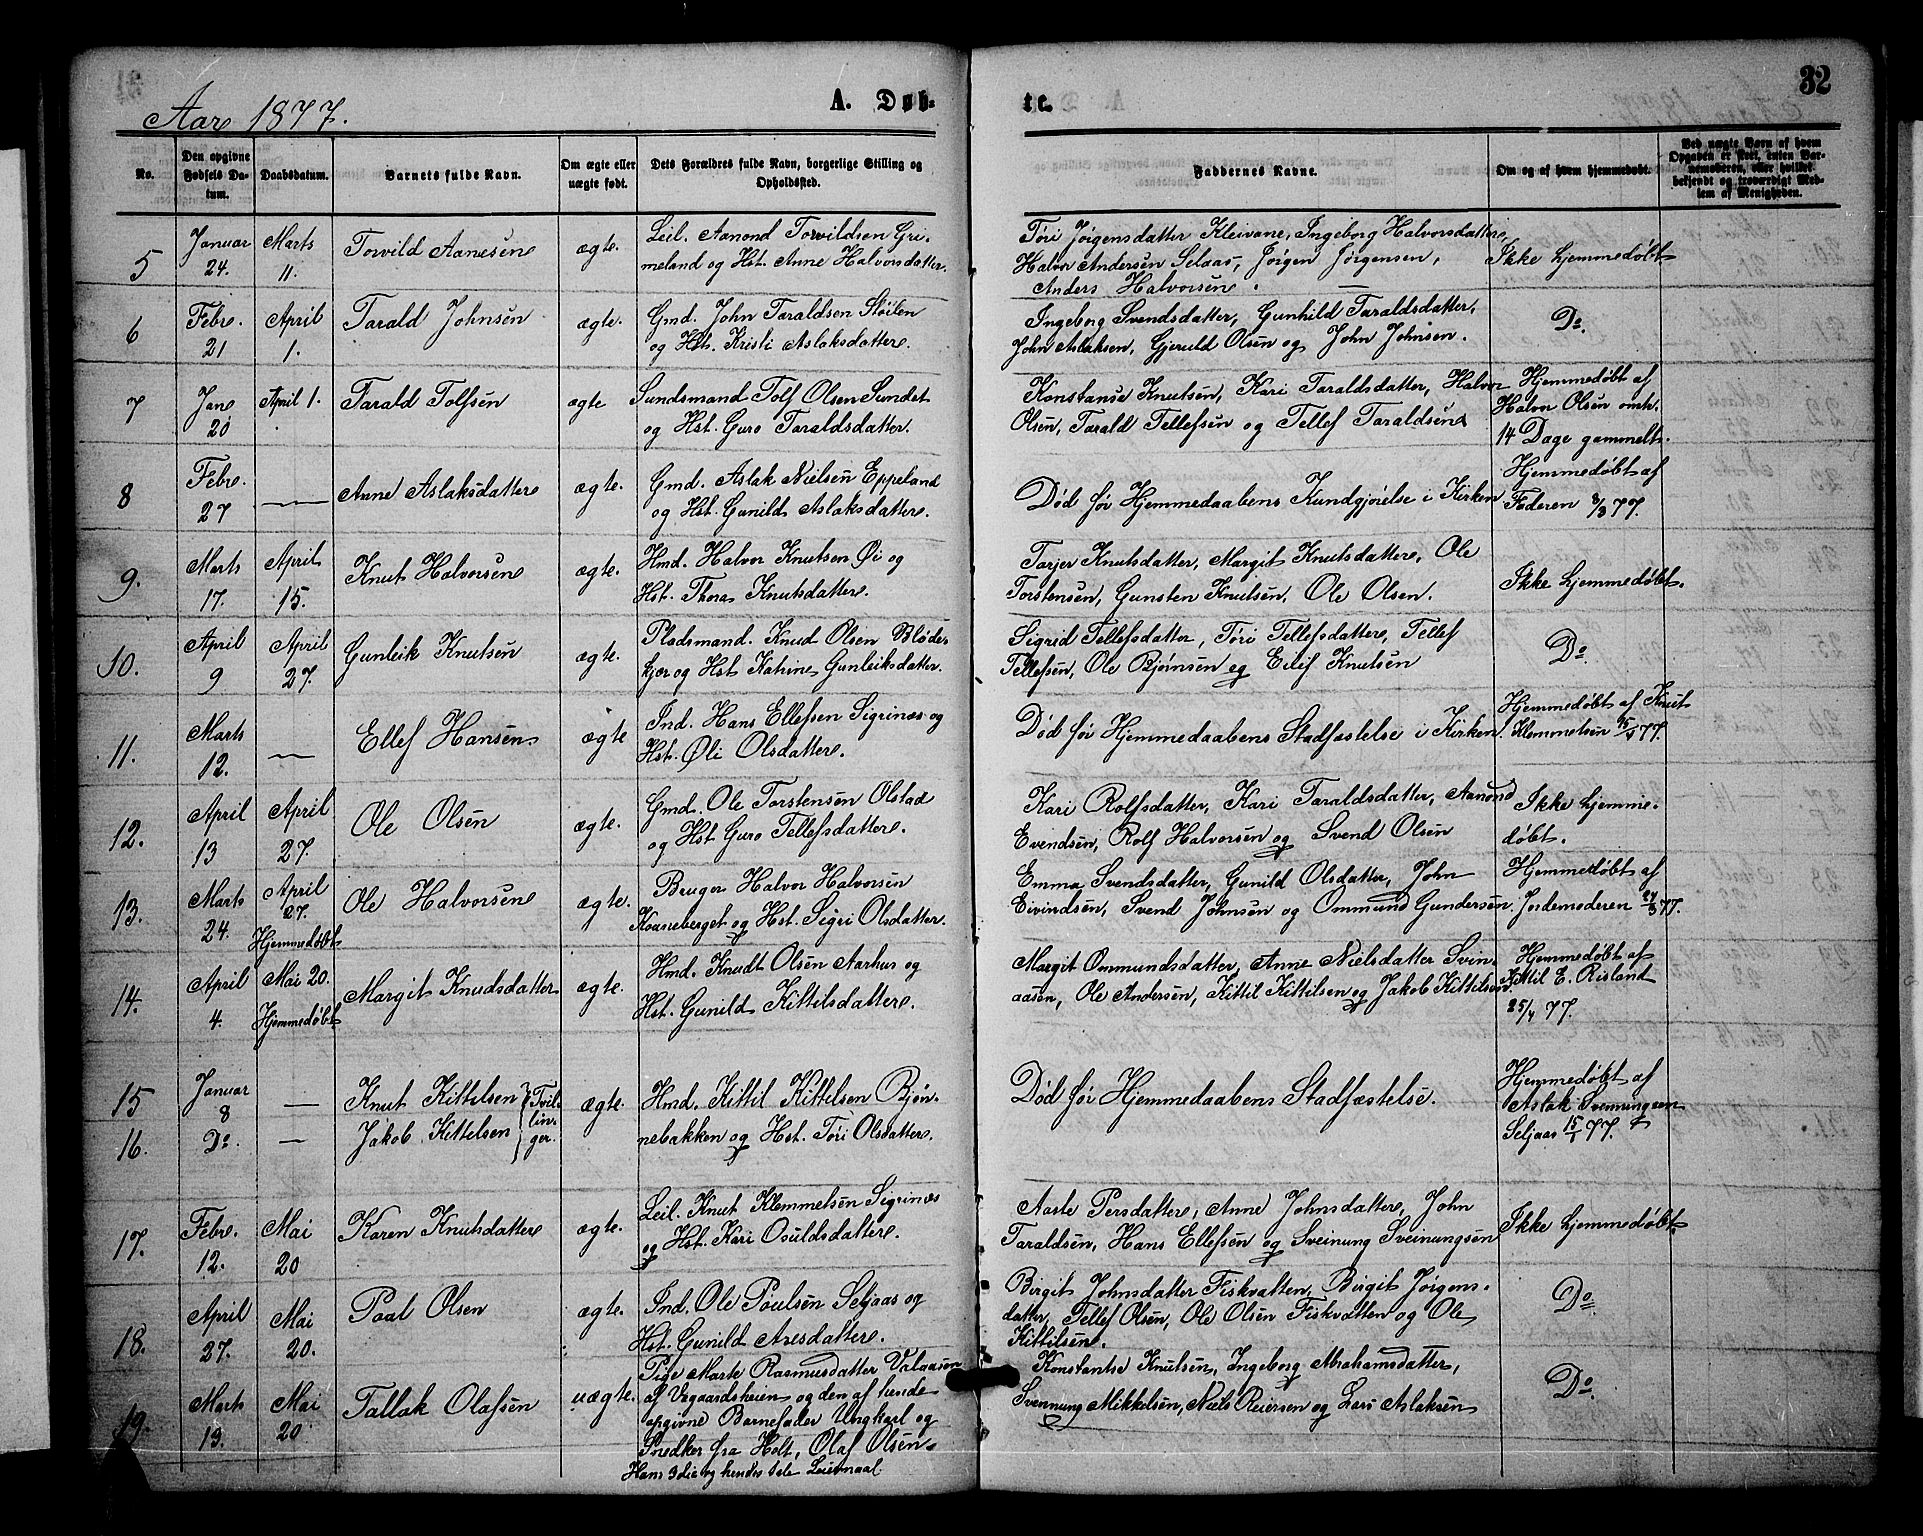 Aar 1877.
A. Døb-
te.
32
No.
Den opgivne Fødsels Da-
tum.
Daabsdatum.
Barnets fulde Navn.
Om ægte eller
uægte født.
Dets Forældres fulde Navn, borgerlige Stilling og
Opholdssted.
Faddernes Navne.
Om og af hvem hjemmedøbt.
Ved uægte Børn af hvem
Opgaven er skeet, enten Bar-
nemoderen, eller hvilket
bekjendt og troværdigt Med-
lem af Menigheden.
5
Januar
24.
Marts
11.
Torvild Aanesen
ægte.
Leil. Aanond Torvildsen Gri-
meland og Hst. Anne Halvorsdatter.
Tøri Jørgensdatter Kleivane, Ingeborg Halvorsdatter,
Halvor Andersen Selaas, Jørgen Jørgensen,
Anders Halvorsen.
Ikke hjemmedøbt
6
Febr.
21
April
1.
Tarald Johnsen
ægte.
Gmd. John Taraldsen Støilen
og Hst. Kristi Aslaksdatter.
Ingeborg Svendsdatter, Gunhild Taraldsdatter,
John Aslaksen, Gjeruld Olsen og John Johnsen.
Do.
7
Jan
20
April 1.
Tarald Tolfsen
ægte
Sundsmand Tolf Olsen Sundet
og Hst. Guro Taraldsdatter.
Konstanse Knutsen, Kari Taraldsdatter, Halvor
Olsen, Tarald Tellefsen og Tellef Taraldsen
Hjemmedøbt af
Halvor Olsen omtr.
14 Dage gammelt.
8
Febr.
27
—
Anne Aslaksdatter
ægte.
Gmd. Aslak Nielsen Eppeland
og Hst. Gunild Aslaksdatter.
Død før Hjemmedaabens Kundgjørelse i Kirken
Hjemmedøbt af
Faderen 8/3 77.
9.
Marts
17.
April
15.
Knut Halvorsen
ægte.
Hmd. Halvor Knutsen Øi og
Hst. Thora Knutsdatter.
Tarjer Knutsdatter, Margit Knutsdatter, Ole
Torstensen, Gunsten Knutsen, Ole Olsen.
Ikke hjemmedøbt.
10.
April
9
April
27.
Gunleik Knutsen
ægte.
Pladsmand. Knud Olsen Bløde-
kjær og Hst Katrine Gunleiksdatter.
Sigrid Tellefsdatter, Tøri Tellefsdatter, Tellef
Tellefsen, Ole Bjørnsen og Eilef Knutsen
Do.
11.
Marts
12.
—
Ellef Hansen
ægte
Ind. Hans Ellefsen Sigrinæs og
Hst. Øli Olsdatter.
Død før Hjemmedaabens Stadfæstelse i Kirken.
Hjemmedøbt af Knut
Klemmetsen 15/4 77.
12.
April
13
April
27.
Ole Olsen
ægte.
Gmd. Ole Torstensen Olstad
og Hst Guro Tellefsdatter.
Kari Rolfsdatter, Kari Taraldsdatter, Aanond
Evendsen, Rolf Halvorsen og Svend Olsen
Ikke hjemme-
døbt.
13.
Marts
24.
April
27.
Hjemmedøbt
Ole Halvorsen
ægte.
Bruger Halvor Halvorsen
Kvaneberget og Hst. Sigri Olsdatter.
Emma Svendsdatter, Gunild Olsdatter, John
Eivindsen, Svend Johnsen og Ommund Gundersen.
Hjemmedøbt af
Jordemoderen 27/3 77.
14.
April
4.
Mai 20.
Hjemmedøbt
Margit Knudsdatter
ægte.
Hmd. Knudt Olsen Aarhus og
Hst. Gunild Kittilsdatter.
Margit Ommundsdatter, Anne Nielsdatter Svin-
aasen, Ole Andersen, Kittil Kittilsen og Jakob Kittilsen.
Hjemmedøbt af
Kittil E. Risland
25/4 77.
15
Januar
8
—
Knut Kittilsen
16.
Do.
—
Jakob Kittelsen
Tvil-
lin-
ger.
ægte.
Hmd. Kittil Kittilsen Bjøn-
nebakken og Hst. Tøri Olsdatter.
Død før Hjemmedaabens Stadfæstelse.
Hjemmedøbt af
Aslak Svenningsen
Seljaas 15/1 77.
17.
Febr.
12.
Mai
20
Karen Knutsdatter
ægte.
Leil. Knut Klemmetsen Sigrinæs
og Hst. Kari Osuldsdatter.
Aaste Persdatter, Anne Johnsdatter, John
Taraldsen, Hans Ellefsen og Sveinung Sveinungsen
Ikke hjemmedøbt
18.
April
27.
Mai
20.
Paal Olsen
ægte.
Ind. Ole Poulsen Seljaas og
Hst. Gunild Aresdatter.
Birgit Johnsdatter Fiskvatten, Birgit Jørgens-
datter, Tellef Olsen, Ole Olsen Fiskvatten og Ole
Kittilsen.
Do.
19.
Marts
13.
Mai
20.
Tallak Olafsen
uægte.
Pige Marte Rasmusdatter Valaasen
af Vegaardsheien og den af hende
opgivne Barnefader Ungkarl og
Snedker fra Holt, Olaf Olsen.
Hans 3die og hendes 1ste Leiermaal
Konstantse Knutsen, Ingeborg Abrahamsdatter,
Svennung Mikkelsen, Niels Reiersen og Lars Aslaksen
Do.